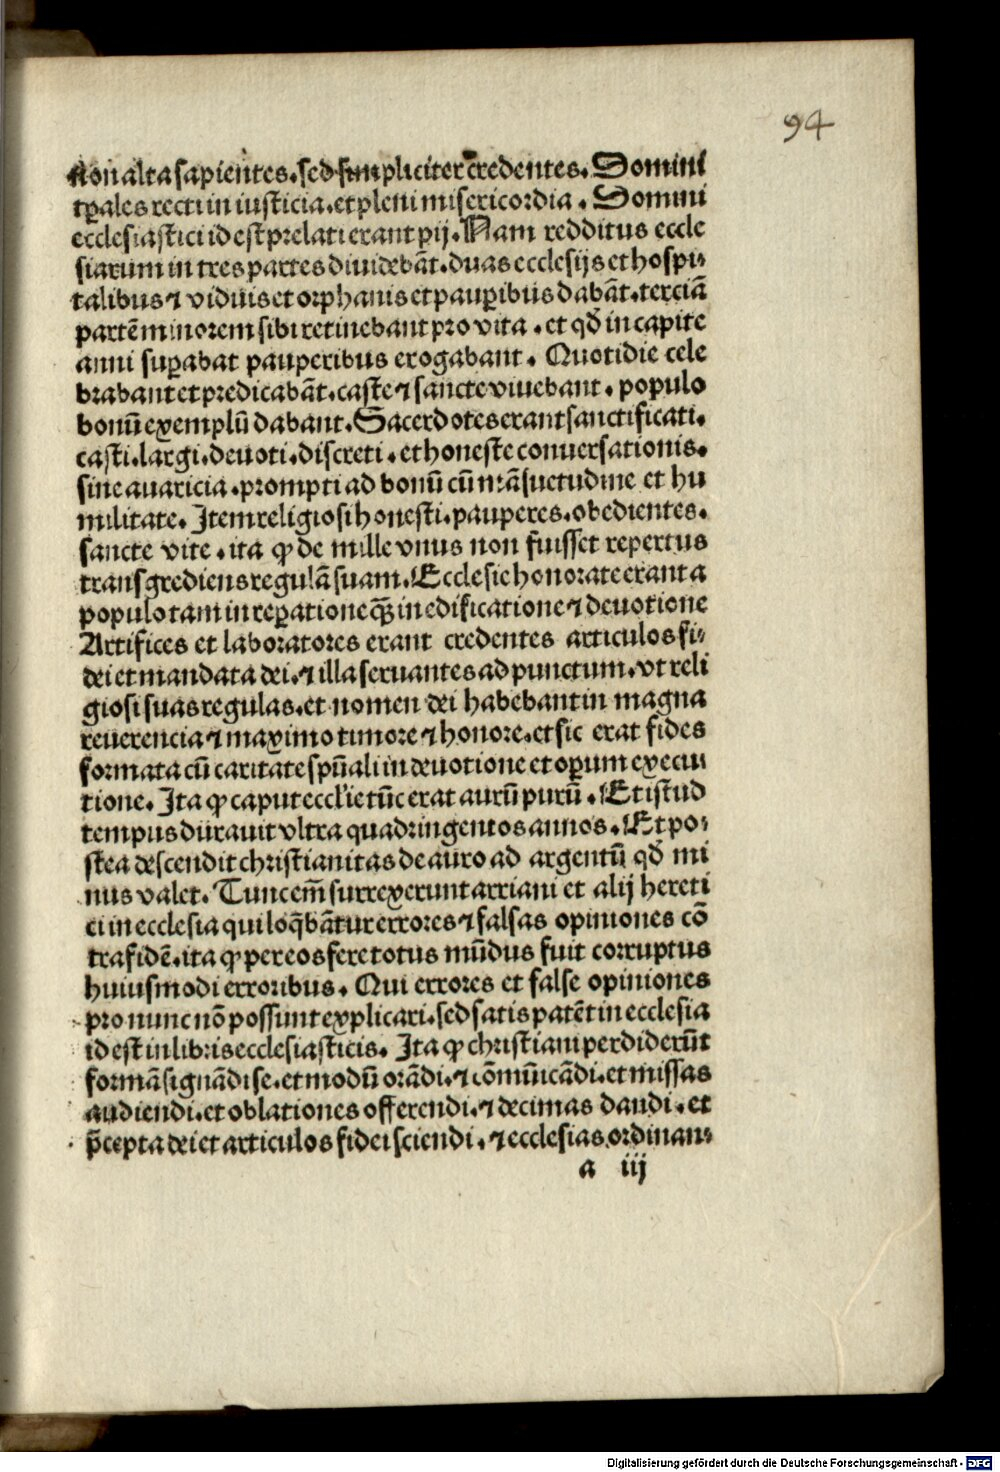 94
Non alta sapientes. sed simpliciter credentes. Domini
tꝑales recti in iusticia. et pleni misericordia. Domini
ecclesiastici id est prelati erant pij. Nam redditus eccle
siarum in tres partes diuidebāt. duas ecclesijs et hospi⸗
talibus ⁊ viduis et orphanis et pauꝑibus dabāt. terciā
partē minorem sibi retinebant pro vita. et qd̄ in capite
anni suꝑabat pauperibus erogabant. Quotidie cele
brabant et predicabāt. caste ⁊ sancte viuebant. populo
bonū exemplū dabant. Sacerdotes erant sanctificati.
casti. largi. deuoti. discreti. et honeste conuersationis.
sine auaricia. prompti ad bonū cū māsuetudine et hu
militate. Item religiosi honesti. pauperes. obedientes.
sancte vite. ita ꝙ de mille vnus non fuisset repertus
transgrediens regulā suam. Ecclesie honorate erant a
populo tam in reꝑatione qꝫ̄ in edificatione ⁊ deuotione
Artifices et laboratores erant credentes articulos fi⸗
dei et mandata dei. ⁊ illa seruantes ad punctum. vt reli
giosi suas regulas. et nomen dei habebant in magna
reuerencia ⁊ maximo timore ⁊ honore. et sic erat fides
formata cū caritate spūali in deuotione et oꝑum execu
tione. Ita ꝙ caput eccl'ie tūc erat aurū purū. Et istud
tempus durauit vltra quadringentos annos. Et po⸗
stea descendit christianitas de auro ad argentū qd̄ mi
nus valet. Tunc em̄ surrexerunt arriani et alij hereti
ci in ecclesia qui loq̄bātur errores ⁊ falsas opiniones cō
tra fidē. ita ꝙ per eos fere totus mūdus fuit corruptus
huiusmodi erroribus. Qui errores et false opiniones
pro nunc nō possunt explicari. sed satis patēt in ecclesia
id est in libris ecclesiasticis. Ita ꝙ christiani perdiderūt
formā signādi se. et modū orādi. ⁊ cōmūicādi. et missas
audiendi. et oblationes offerendi. ⁊ decimas dandi. et
p̄cepta dei et articulos fidei sciendi. ⁊ ecclesias ordinan⸗
a iij
Digitalisierung gefördert durch die Deutsche Forschungsgemeinschaft - DFG